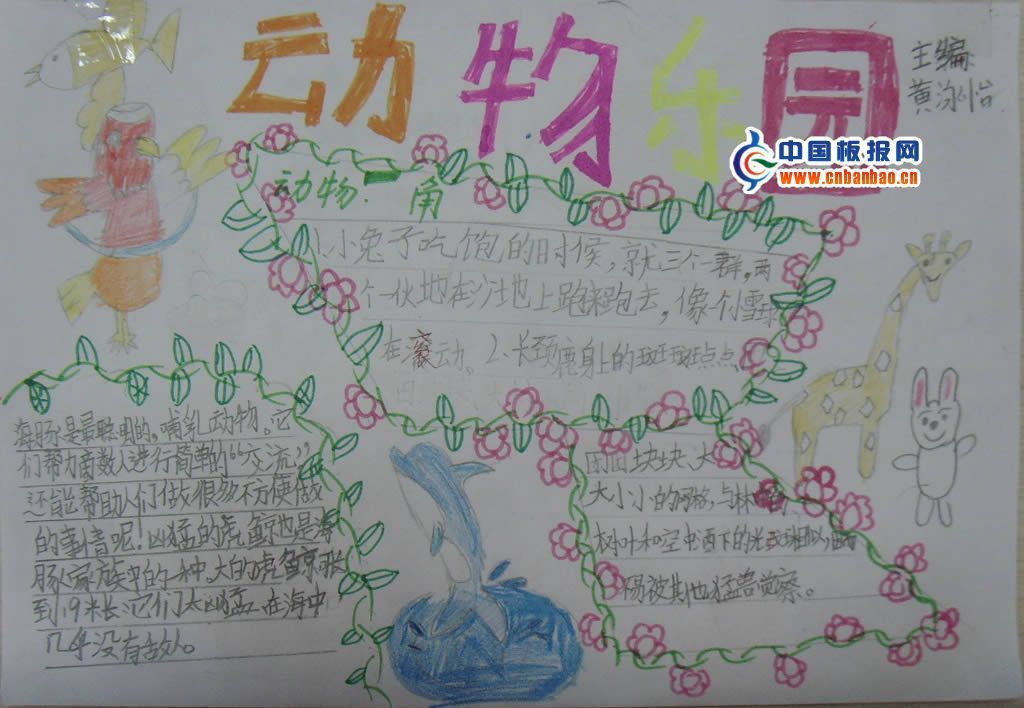 动物乐园
主编
黄泳怡
中国板报网
www.cnbanbao.cn
动物一角
1.小兔子吃饱的时候,就三个一群,两
个一伙地在沙地上跑来跑去,像个雪球
在滚动。2.长颈鹿身上的斑斑点点
团团块块、大
大小小的网格,与林
树叶和空
被其他猛兽觉察。
海豚是最聪明的。哺乳动物。它
们帮力商数人进行简单的“交流”
还能帮助人们做很多不方便做
的事情呢!凶猛的虎鲸也是海
豚家族中的一种。大的虎鲸
到19米长它们太凶猛在海中
几乎没有敌人。